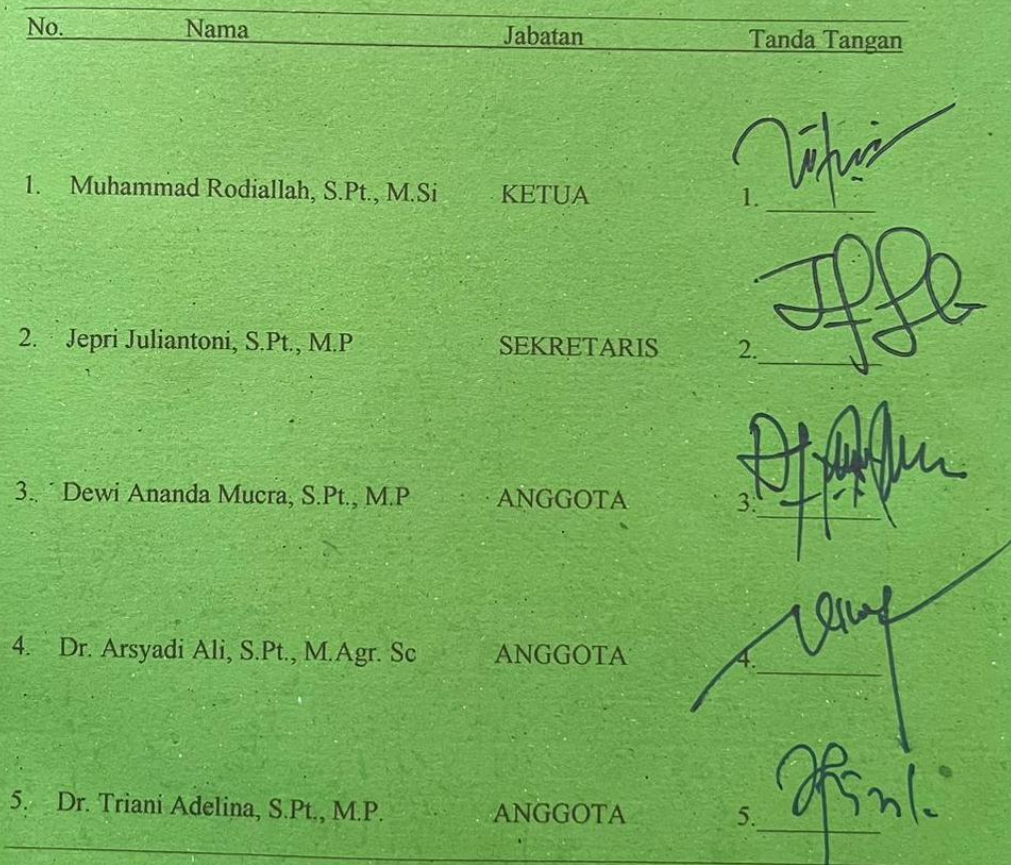 No. Nama Jabatan Tanda Tangan
1. Muhammad Rodiallah, S.Pt., M.Si KETUA 1.
2. Jepri Juliantoni, S.Pt., M.P SEKRETARIS 2.
3. Dewi Ananda Mucra, S.Pt., M.P ANGGOTA 3.
4. Dr. Arsyadi Ali, S.Pt., M.Agr. Sc ANGGOTA 4.
5. Dr. Triani Adelina, S.Pt., M.P. ANGGOTA 5.